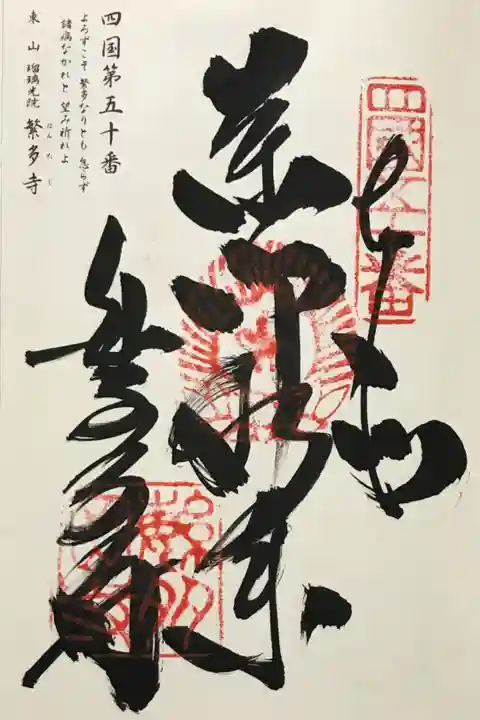 四國五十番
薬師如来
繁多寺
四国第五十番
よろずこそ 繁多なりとも 怠らず
諸病なかれと 望み祈れよ
東山 瑠璃光院 繁多寺
はんたじ